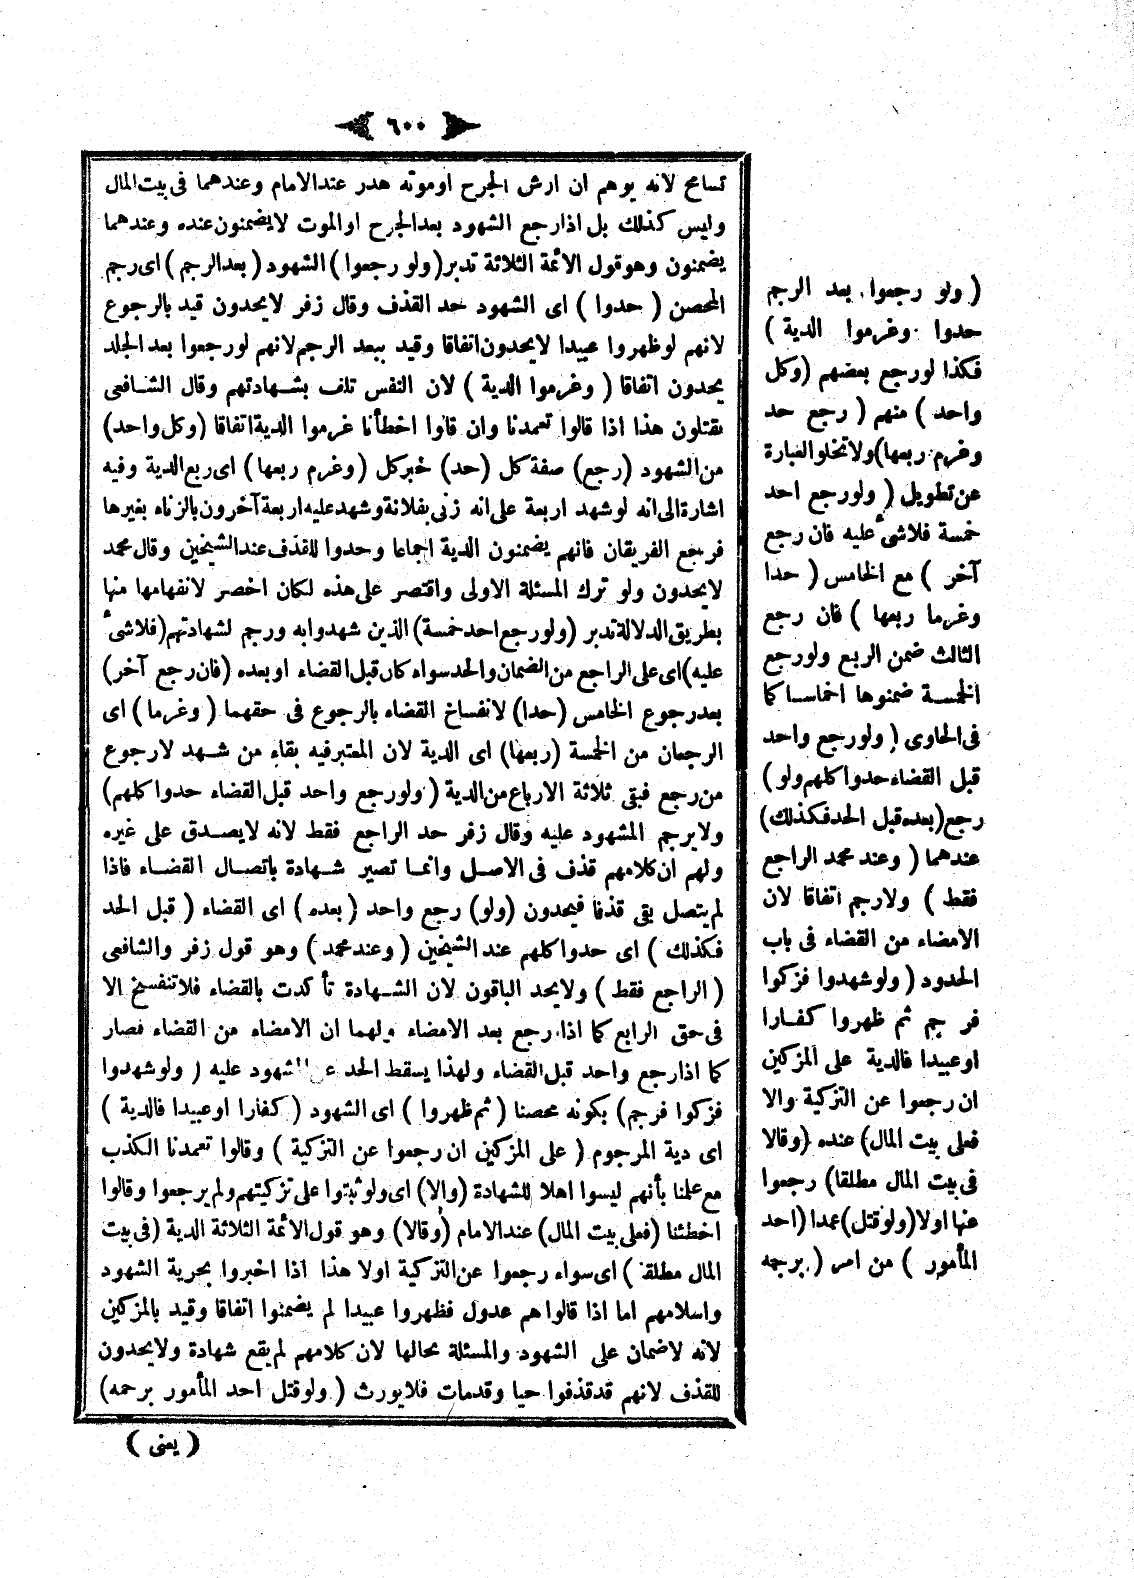 ٦٠٠
تسامح لانه يوهم ان ارش الجرح اوموته هدر عند الامام وعندهما فى بيت المال
وليس كذلك بل اذا رجع الشهود بعد الجرح او الموت لا يضمنون عنده وعندهما
يضمنون وهو قول الائمة الثلاثة تدبر (ولو رجعوا) الشهود (بعد الرجم) اى رجم
المحصن (حدوا) اى الشهود حد القذف وقال زفر لا يحدون قيد بالرجوع
لانهم لو ظهروا عبيدا لا يحدون اتفاقا وقيد ببعد الرجم لانهم لو رجعوا بعد الجلد
يحدون اتفاقا (وغرموا الدية) لان النفس تلف بشهادتهم وقال الشافعى
يقتلون هذا اذا قالوا تعمدنا وان قالوا اخطأنا غرموا الدية اتفاقا (وكل واحد)
من الشهود (رجع) صفة كل (حد) خبر كل (وغرم ربعها) اى ربع الدية وفيه
اشارة الى انه لو شهد اربعة على انه زنى بفلانة وشهد عليه اربعة آخرون بالزناء بغيرها
فرجع الفريقان فانهم يضمنون الدية اجماعا وحدوا للقذف عند الشيخين وقال محمد
لا يحدون ولو ترك المسئلة الاولى واقتصر على هذه لكان اخصر لانفهامها منها
بطريق الدلالة تدبر (ولو رجع احد خمسة) الذين شهدوا به ورجم لشهادتهم (فلا شئ
عليه) اى على الراجع من الضمان والحد سواء كان قبل القضاء او بعده (فان رجع آخر)
بعد رجوع الخامس (حدا) لانفساخ القضاء بالرجوع فى حقهما (وغرما) اى
الرجعان من الخمسة (ربعها) اى الدية لان المعتبر فيه بقاء من شهد لا رجوع
من رجع فبقى ثلاثة الارباع من الدية (ولو رجع واحد قبل القضاء حدوا كلهم)
ولا يرجم المشهود عليه وقال زفر حد الراجع فقط لانه لا يصدق على غيره
ولهم ان كلامهم قذف فى الاصل وانما تصير شهادة باتصال القضاء فاذا
لم يتصل بقى قذفا فيحدون (ولو) رجع واحد (بعده) اى القضاء (قبل الحد
فكذلك) اى حدوا كلهم عند الشيخين (وعند محمد) وهو قول زفر والشافعى
(الراجع فقط) ولا يحد الباقون لان الشهادة تأكدت بالقضاء فلا تنفسخ الا
فى حق الرابع كما اذا رجع بعد الامضاء ولهما ان الامضاء من القضاء فصار
كما اذا رجع واحد قبل القضاء ولهذا يسقط الحد عن المشهود عليه (ولو شهدوا
فزكوا فرجم) بكونه محصنا (ثم ظهروا) اى الشهود (كفارا او عبيدا فالدية)
اى دية المرجوم (على المزكين ان رجعوا عن التزكية) وقالوا تعمدنا الكذب
مع علمنا بأنهم ليسوا اهلا للشهادة (والا) اى ولو ثبتوا على تزكيتهم ولم يرجعوا وقالوا
اخطئنا (فعلى بيت المال) عند الامام (وقالا) وهو قول الائمة الثلاثة الدية (فى بيت
المال مطلقا) اى سواء رجعوا عن التزكية اولا هذا اذا اخبروا بحرية الشهود
واسلامهم اما اذا قالوا هم عدول فظهروا عبيدا لم يضمنوا اتفاقا وقيد بالمزكين
لانه لا ضمان على الشهود والمسئلة بحالها لان كلامهم لم يقع شهادة ولا يحدون
للقذف لانهم قد قذفوا حيا وقدمات فلا يورث (ولو قتل احد المأمور برجمه)
(يعنى)
(ولو رجعوا بعد الرجم
حدوا وغرموا الدية)
فكذا لو رجع بعضهم (وكل
واحد) منهم (رجع حد
وغرم ربعها) ولا تخلو العبارة
عن تطويل (ولو رجع احد
خمسة فلا شئ عليه فان رجع
آخر) مع الخامس (حدا
وغرما ربعها) فان رجع
الثالث ضمن الربع ولو رجع
الخمسة ضمنوها اخماسا كما
فى الحاوى (ولو رجع واحد
قبل القضاء حدوا كلهم ولو)
رجع (بعده قبل الحد فكذلك)
عندهما (وعند محمد الراجع
فقط) ولا رجم اتفاقا لان
الامضاء من القضاء فى باب
الحدود (ولو شهدوا فزكوا
فرجم ثم ظهروا كفارا
او عبيدا فالدية على المزكين
ان رجعوا عن التزكية والا
فعلى بيت المال) عنده (وقالا
فى بيت المال مطلقا) رجعوا
عنها اولا (ولو قتل) عمدا (احد
المأمور) من امر (برجمه